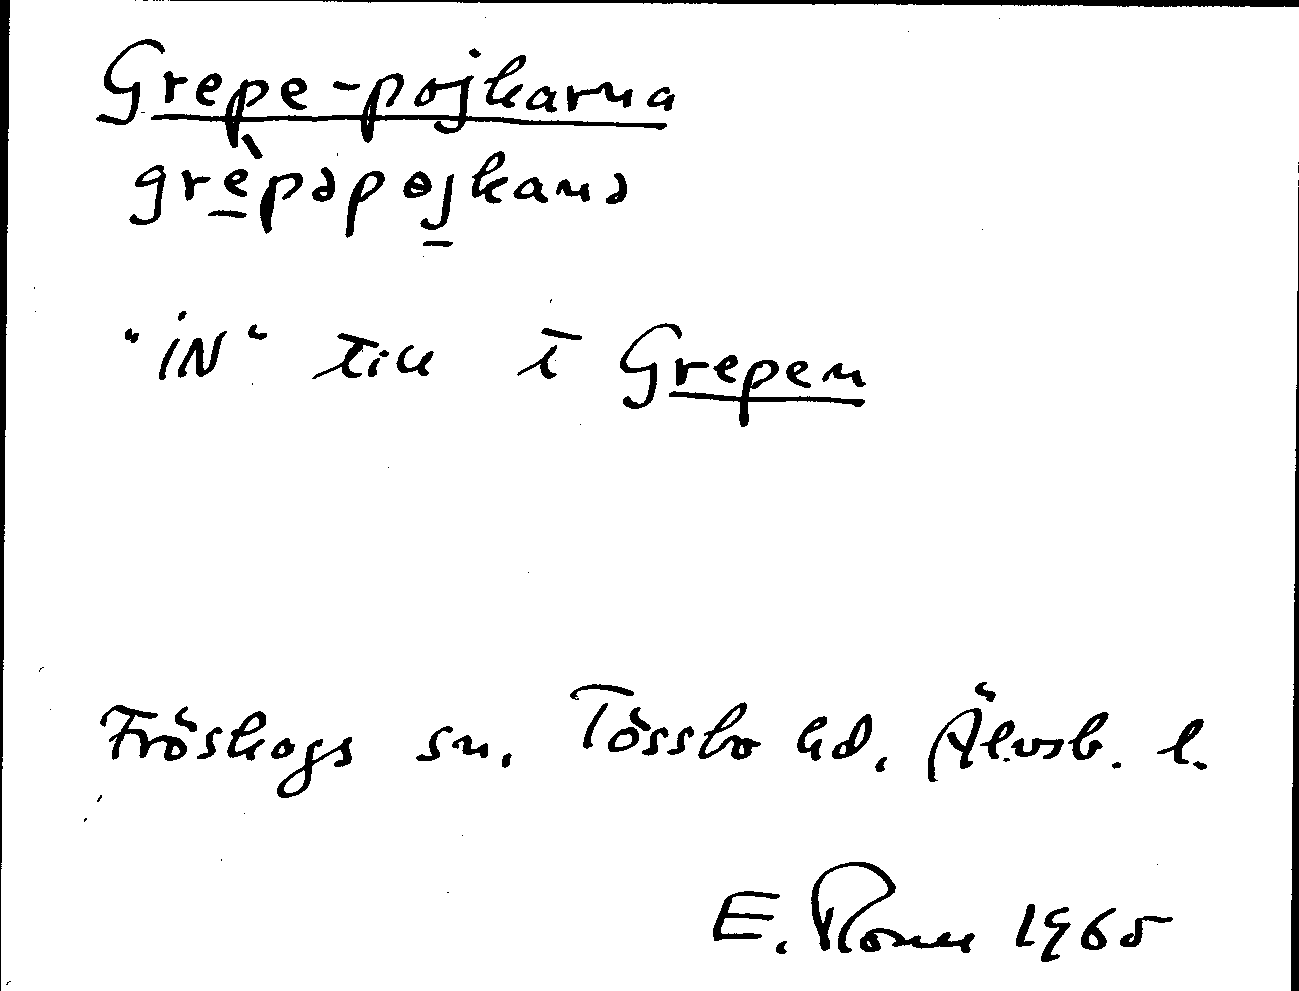 Grepe-pojkarna
grèpəpojkanə
"iN" till t Grepen
Fröskogs sn. Tössbo hd. Älvsb. l.
E. 1965